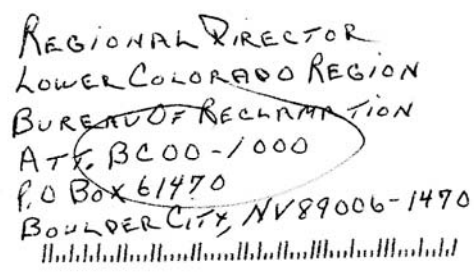 REGIONAL DIRECTOR
LOWER COLORADO REGION
BUREAU OF RECLAMATION
ATT. BC00-1000
P.O BOX 61470
BOULDER CITY, NV 89006-1470